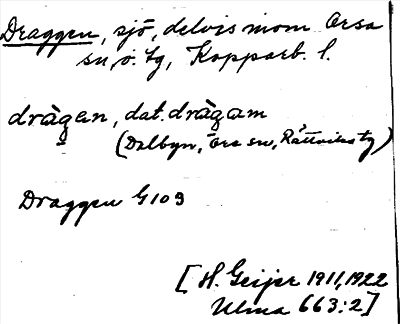 Draggen, sjö, delvis inom Orsa
sn, o. tg, Kopparb. l.
dràgan, dat. dràgam
(Dalbyn, Ore sn, Rättviks tg)
Draggen G109
[H. Geijer 1911, 1922
Ulma 663:2]